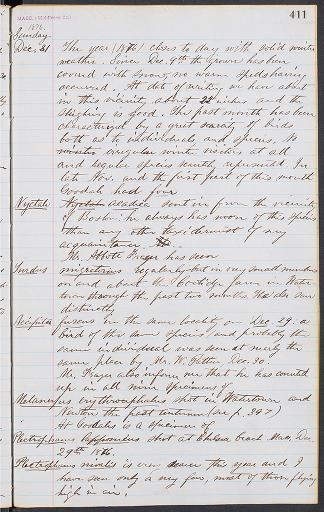 411
1876.
Sunday
Dec. 31 The year (1876) closes to day with solid winter
weather. Since Dec. 9th the ground has been
covered with snow, no warm spells having
occurred. At date of writing we have about
in this vicinity about 28 inches and the
sleighing is good. The past month has been
characterized by a great scarcity of birds
both as to individuals and species. No
irregular winter visitors at all
and regular species scantily represented. In
late Nov. and the first part of this month
Goodale had four
Nyctale acadica sent in from the vicinity
of Boston: he always has more of this species
than any other taxidermist of my
acquaintance.
Mr. Abbott Frazar has seen
Turdus migratorius regularly but in very small numbers
on and about the Coolidge farm in Water-
town through the past two months. Has also seen
distinctly
fuscus in the same locality on Dec. 29 a
bird of this species and probably the
same individual was seen at nearly the
same place by Mr. W. Dec. 30.
Mr. Frazar also informs me that he has counted
up in all nine specimens of
Melanerpes erythrocephalus shot in Watertown and
Newton the past autumn (see p. 397)
At Goodale's is a specimen of
Plectrophanes lapponicus shot at Chelsea Beach Mass. Dec.
29th 1876.
Plectrophanes nivalis is very scarce this year and I
have seen only a very few, most of them flying
high in air.